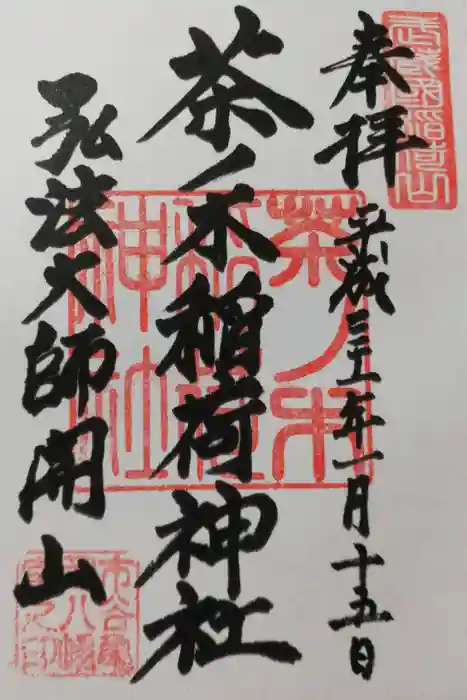 奉拝 平成三十一年一月十五日
茶ノ木稲荷神社
弘法大師開山
茶ノ木
稲荷
神社
市谷亀
岡八幡
宮之印